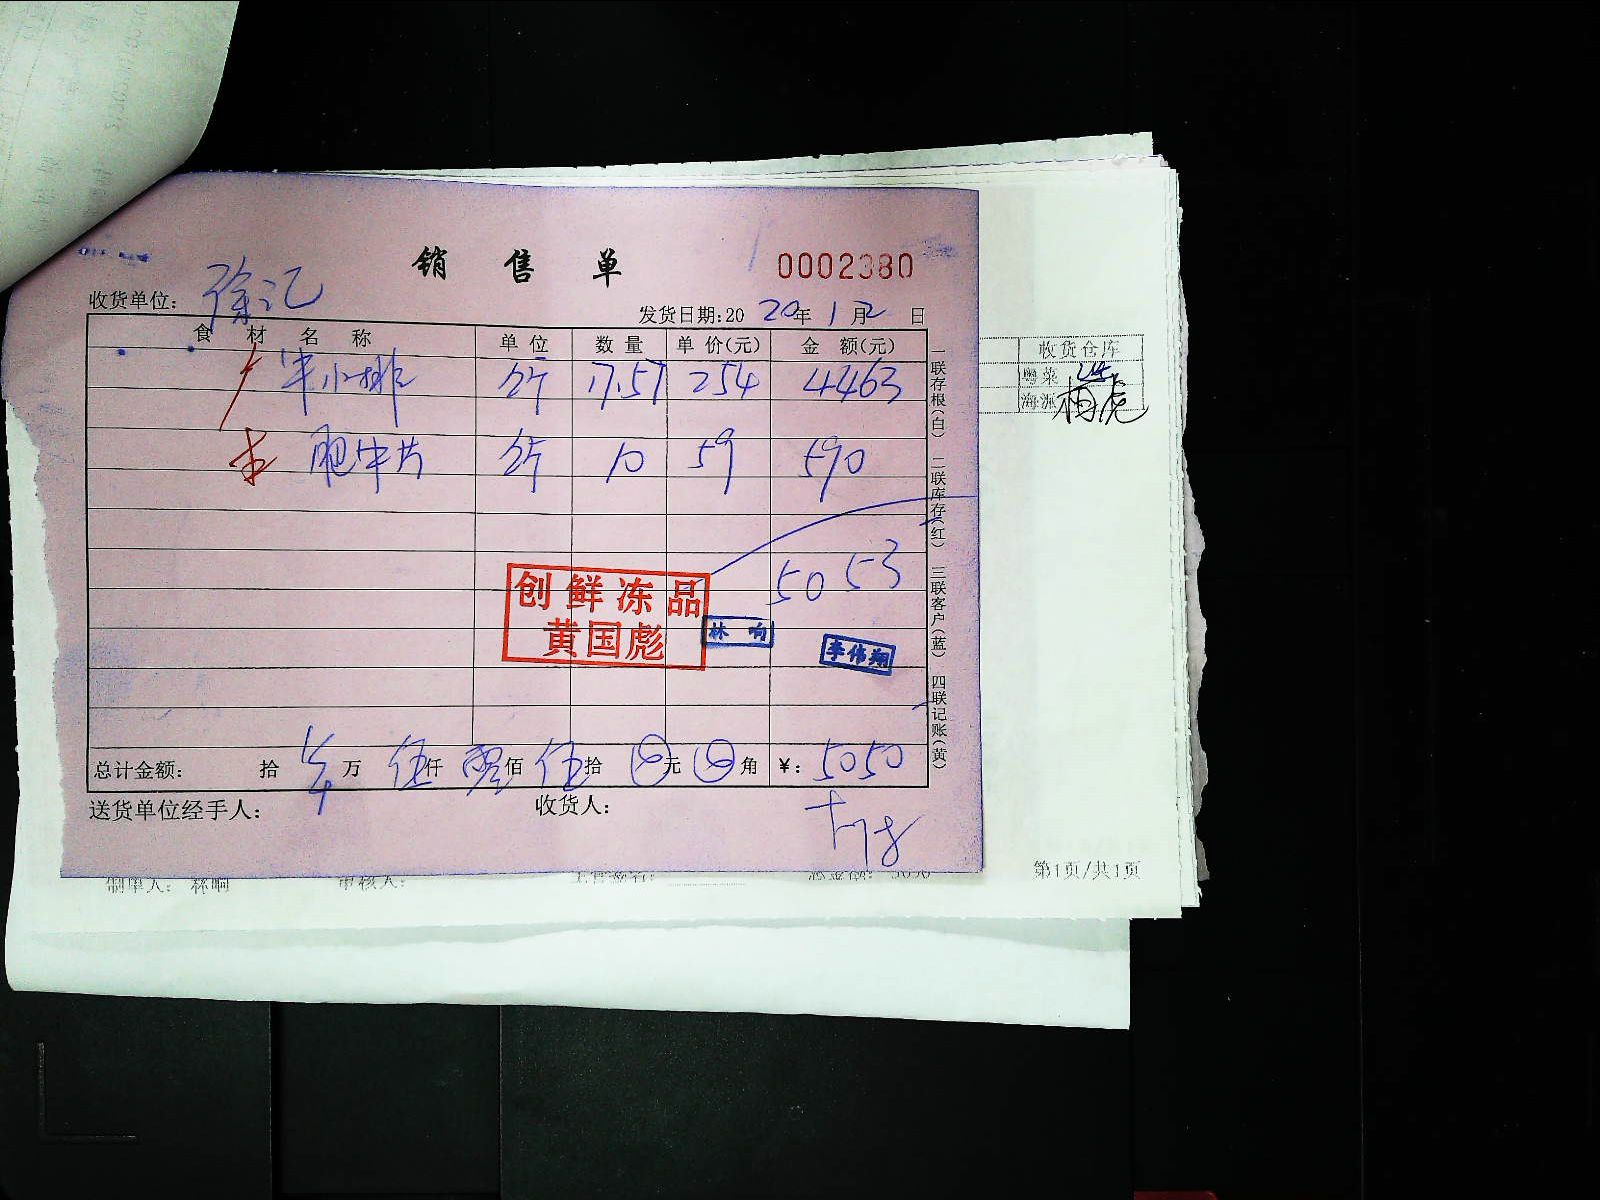 销 售 单
0002380
收货单位: 徐汇
发货日期:20 20年 1月2日
食 材 名 称 单位 数量 单价(元) 金 额(元)
牛小排 斤 17.57 254 4463
肥牛片 斤 10 59 590
5053
创鲜冻品
黄国彪
林响
李伟翔
总计金额: 拾 万 伍仟 零佰 伍拾 元 角 ¥: 5050
送货单位经手人: 收货人:
一联存根(白) 二联库存(红) 三联客户(蓝) 四联记账(黄)
收货仓库
粤菜
海派
制单人: 林响 审核人: 总金额: 5050
第1页/共1页